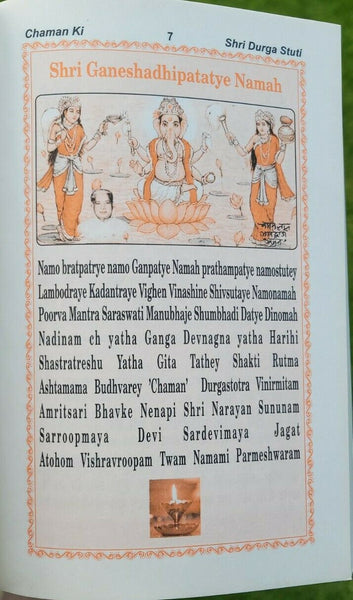 Chaman Ki 7 Shri Durga Stuti
Shri Ganeshadhipatatye Namah
Namo bratpatrye namo Ganpatye Namah prathampatye namostutey
Lambodraye Kadantraye Vighen Vinashine Shivsutaye Namonamah
Poorva Mantra Saraswati Manubhaje Shumbhadi Datye Dinomah
Nadinam ch yatha Ganga Devnagna yatha Harihi
Shastratreshu Yatha Gita Tathey Shakti Rutma
Ashtamama Budhvarey 'Chaman' Durgastotra Vinirmitam
Amritsari Bhavke Nenapi Shri Narayan Sununam
Sarroopmaya Devi Sardevimaya Jagat
Atohom Vishravroopam Twam Namami Parmeshwaram